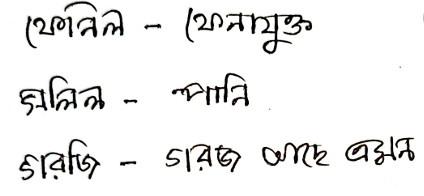 ফেনিল - ফেনাযুক্ত
সলিল - পানি
গরজি - গরজ আছে এমন